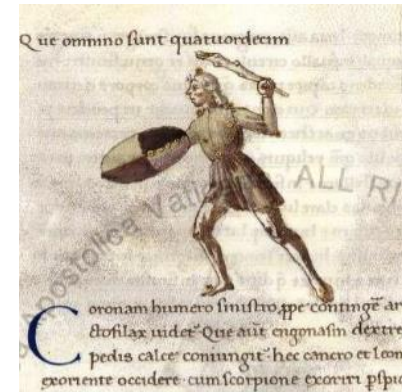 Que omnino sunt quatuordecim
Apostolica Vaticana ALL RI
Coronam humero sinistro ꝓpe contingẽ ar
ctofilax uidet̃ Que aut̃ engonasin dextre
pedis calce coniungit̃ hec cancro et leon
exoriente occidere cum scorpione exoriri